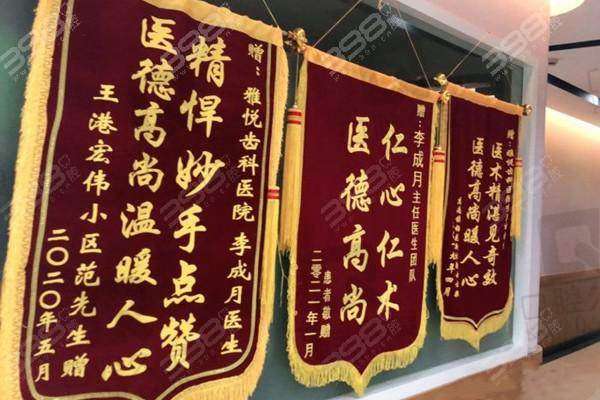 赠：雅悦齿科医院 李成月医生
精悍妙手点赞
医德高尚温暖人心
王港宏伟小区范先生赠
二〇二〇年五月
赠：李成月主任医生团队
仁心仁术
医德高尚
患者敬赠
二零二一年一月
医术精湛见奇效
医德高尚暖人心